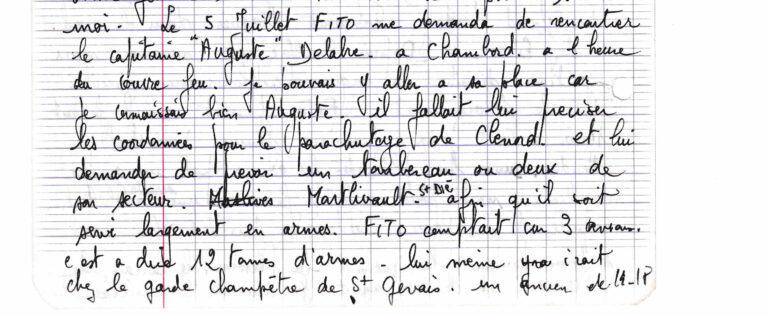 moi. Le 5 Juillet FITO me demanda de rencontrer
le capitaine "Auguste" Delahe. a Chambord. a l heure
du couvre feu. Je pouvais y aller a sa place car
Je connaissais bien Auguste. il fallait lui preciser
les coordonnées pour le parachutage de Clenord. et lui
demander de prevoir un tombereau ou deux de
son secteur. Maslives Montlivault. St DIÉ afin qu'il soit
servi largement en armes. FITO comptait sur 3 avions.
c est a dire 12 tonnes d'armes. lui meme irait
chez le garde champêtre de St Gervais. un ancien de 14-18